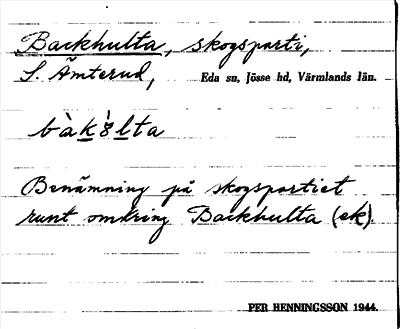 Backhulta, skogsparti,
S. Ämterud, Eda sn, Jösse hd, Värmlands län.
bàk8̀lta
Benämning på skogspartiet
runt omkring Backhulta (ek).
PER HENNINGSSON 1944.